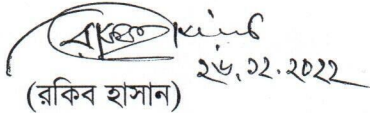 ২৬.১২.২০২২
(রকিব হাসান)